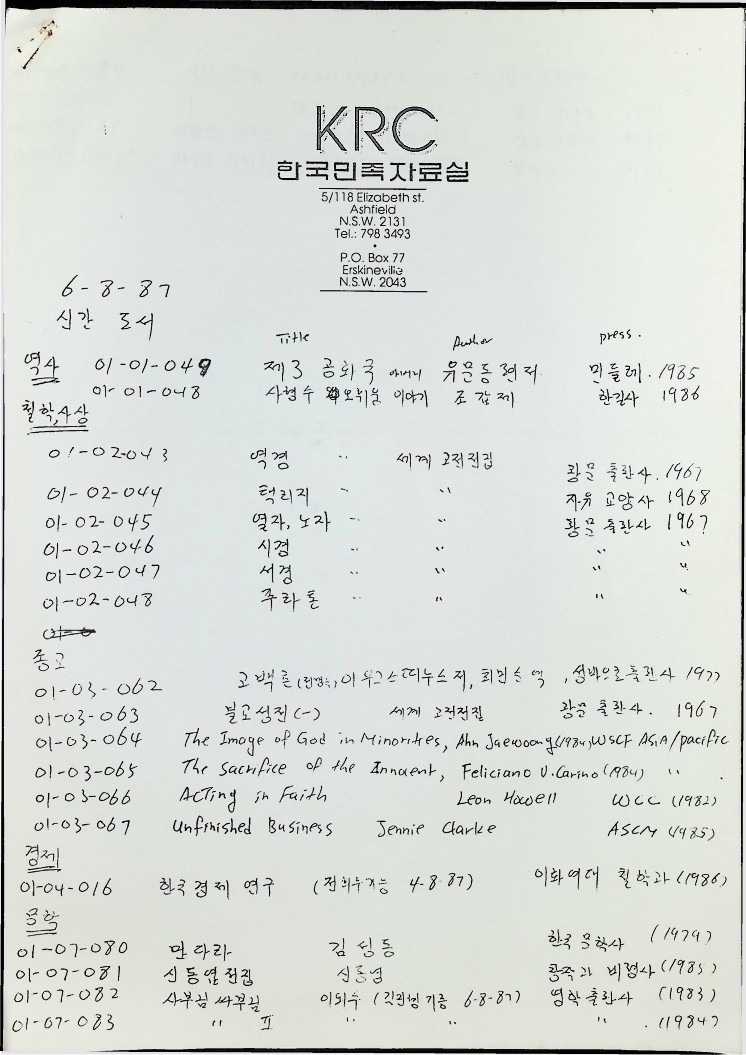 KRC
한국민족자료실
5/118 Elizabeth st.
Ashfield
N.S.W. 2131
Tel.: 798 3493
P.O. Box 77
Erskineville
N.S.W. 2043
6-8-87
신간 도서
Title Author press.
역사 01-01-049 제3 공화국 유문동 편저 민들레. 1985
01-01-048 사형수 이야기 조갑제 한길사 1986
철학,사상
01-02-043 역경 〃 세계 고전전집 광문 출판사. 1967
01-02-044 택리지 〃 〃 자유 교양사 1968
01-02-045 열자, 노자 〃 〃 광문 출판사 1967
01-02-046 시경 〃 〃 〃 〃
01-02-047 서경 〃 〃 〃 〃
01-02-048 푸라톤 〃 〃 〃 〃
종교
01-03-062 고백론 아우구스띠누스 저, 최민순 역, 성바오로출판사 1977
01-03-063 불교성전(一) 세계 고전전집 광문 출판사. 1967
01-03-064 The Image of God in Minorities, Ahn Jaewoong(1984) WSCF ASIA/pacific
01-03-065 The Sacrifice of the Innocent, Feliciano V. Carino (1984) 〃 .
01-03-066 Acting in Faith Leon Howell WCC (1982)
01-03-067 Unfinished Business Jennie Clarke ASCM (1985)
경제
01-04-016 한국경제 연구 4-8-87) 이화여대 철학과 (1986)
문학
01-07-080 만다라 김성동 한국 문학사 (1979)
01-07-081 신동엽전집 신동엽 창작과 비평사 (1985)
01-07-082 사부님 싸부님 이외수 기증 6-8-87) 영학출판사 (1983)
01-07-083 〃 II 〃 〃 〃 . (1984)